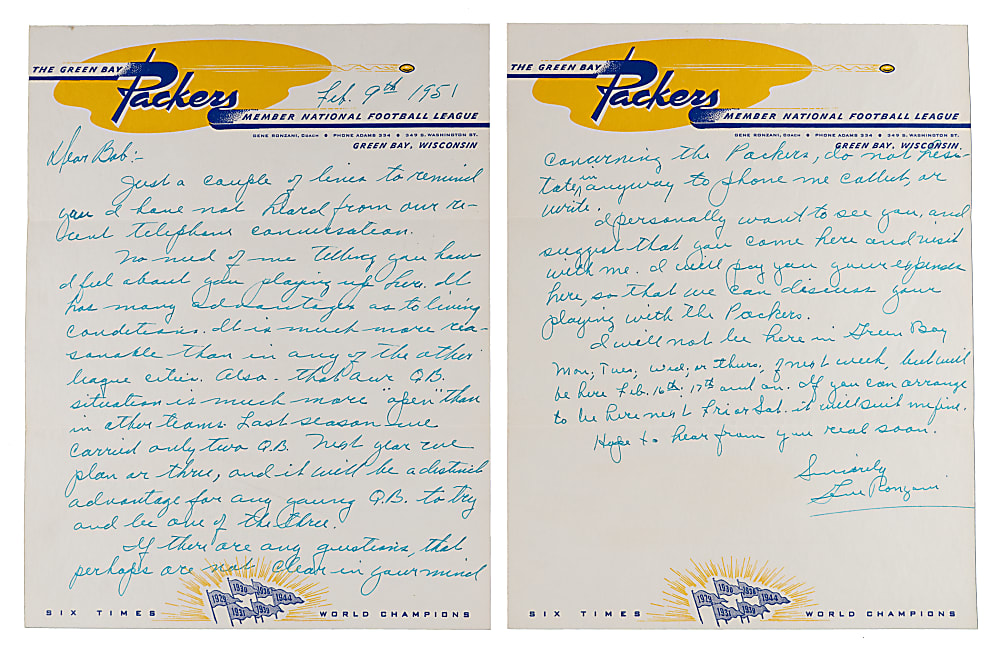 THE GREEN BAY
Packers
Feb. 9th 1951
MEMBER NATIONAL FOOTBALL LEAGUE
GENE RONZANI, COACH • PHONE ADAMS 334 • 349 S. WASHINGTON ST.
GREEN BAY, WISCONSIN
Dear Bob:-
Just a couple of lines to remind
you I have not heard from our re-
cent telephone conversation.
No need of me telling you how
I feel about you playing up here. It
has many advantages as to living
conditions. It is much more rea-
sonable than in any of the other
league cities. Also - that our Q.B.
situation is much more "open" than
in other teams. Last season we
carried only two Q.B. Next year we
plan on three, and it will be a distinct
advantage for any young Q.B. to try
and be one of the three.
If there are any questions, that
perhaps are not clear in your mind
1929 1930 1936 1944
1931 1939
SIX TIMES WORLD CHAMPIONS
THE GREEN BAY
Packers
MEMBER NATIONAL FOOTBALL LEAGUE
GENE RONZANI, COACH • PHONE ADAMS 334 • 349 S. WASHINGTON ST.
GREEN BAY, WISCONSIN.
concerning the Packers, do not hesi-
tate in anyway to phone me collect, or
write.
I personally want to see you, and
suggest that you come here and visit
with me. I will pay you your expenses
here, so that we can discuss your
playing with the Packers.
I will not be here in Green Bay
Mon, Tues, Wed, or Thurs, of next week, but will
be here Feb. 16th, 17th and on. If you can arrange
to be here next Fri or Sat. it will suit me fine.
Hope to hear from you real soon.
Sincerely
Gene Ronzani
1929 1930 1936 1944
1931 1939
SIX TIMES WORLD CHAMPIONS